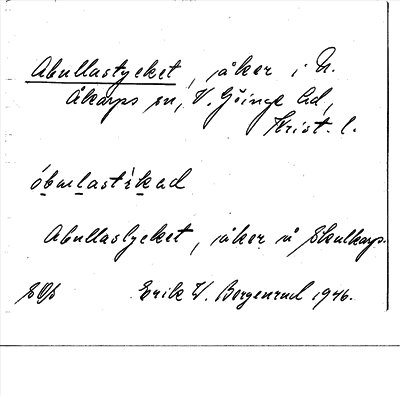 Abullastycket, åker i N.
Åkarps sn, V. Göinge hd,
Krist. l.
óbmlastìkad
Abullastycket, åker å Skulkarp.
Erik W. Borgenrud 1946.